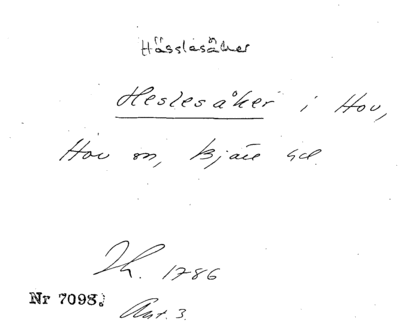 Hässlesåker
Heslesåker i Hov,
Hov sn, Bjäre hd
1786
Nr 7098.
Ant. 3.